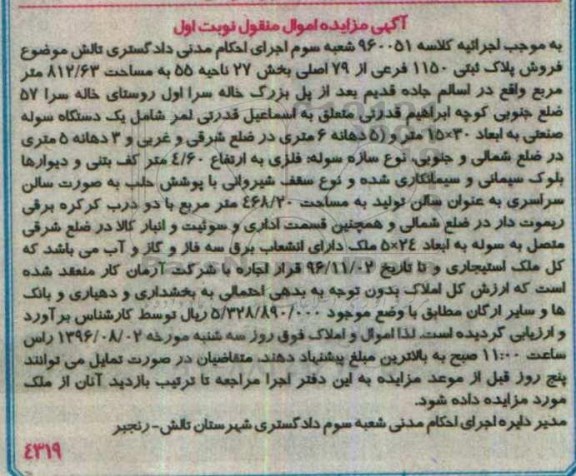 آگهی مزایده اموال منقول نوبت اول
به موجب اجرائیه کلاسه ۹۶۰۰۵۱ شعبه سوم اجرای احکام مدنی دادگستری تالش موضوع
فروش پلاک ثبتی ۱۱۵۰ فرعی از ۷۹ اصلی بخش ۲۷ ناحیه ۵۵ به مساحت ۸۱۲/۶۳ متر
مربع واقع در اسالم جاده قدیم بعد از پل بزرگ خاله سرا اول روستای خاله سرا ۵۷
ضلع جنوبی کوچه ابراهیم قدرتی متعلق به اسماعیل قدرتی لمر شامل یک دستگاه سوله
صنعتی به ابعاد ۳۰×۱۵ متر و (۵ دهانه ۶ متری در ضلع شرقی و غربی و ۳ دهانه ۵ متری
در ضلع شمالی و جنوبی، نوع سازه سوله: فلزی به ارتفاع ۴/۶۰ متر کف بتنی و دیوارها
بلوک سیمانی و سیمانکاری شده و نوع سقف شیروانی با پوشش حلب به صورت سالن
سراسری به عنوان سالن تولید به مساحت ۴۶۸/۲۰ متر مربع با دو درب کرکره برقی
ریموت دار در ضلع شمالی و همچنین قسمت اداری و سوئیت و انبار کالا در ضلع شرقی
متصل به سوله به ابعاد ۲۴×۵ ملک دارای انشعاب برق سه فاز و گاز و آب می باشد که
کل ملک استیجاری و تا تاریخ ۹۶/۱۱/۰۲ قرار اجاره با شرکت آرمان کار منعقد شده
است که ارزش کل املاک بدون توجه به بدهی احتمالی به بخشداری و دهیاری و بانک
ها و سایر ارگان مطابق با وضع موجود ۵/۳۲۸/۸۹۰/۰۰۰ ریال توسط کارشناس برآورد
و ارزیابی گردیده است. لذا اموال و املاک فوق روز سه شنبه مورخه ۱۳۹۶/۰۸/۰۲ راس
ساعت ۱۱:۰۰ صبح به بالاترین مبلغ پیشنهاد دهند، متقاضیان در صورت تمایل می توانند
پنج روز قبل از موعد مزایده به این دفتر اجرا مراجعه تا ترتیب بازدید آنان از ملک
مورد مزایده داده شود.
مدیر دایره اجرای احکام مدنی شعبه سوم دادگستری شهرستان تالش- رنجبر
۴۳۱۹